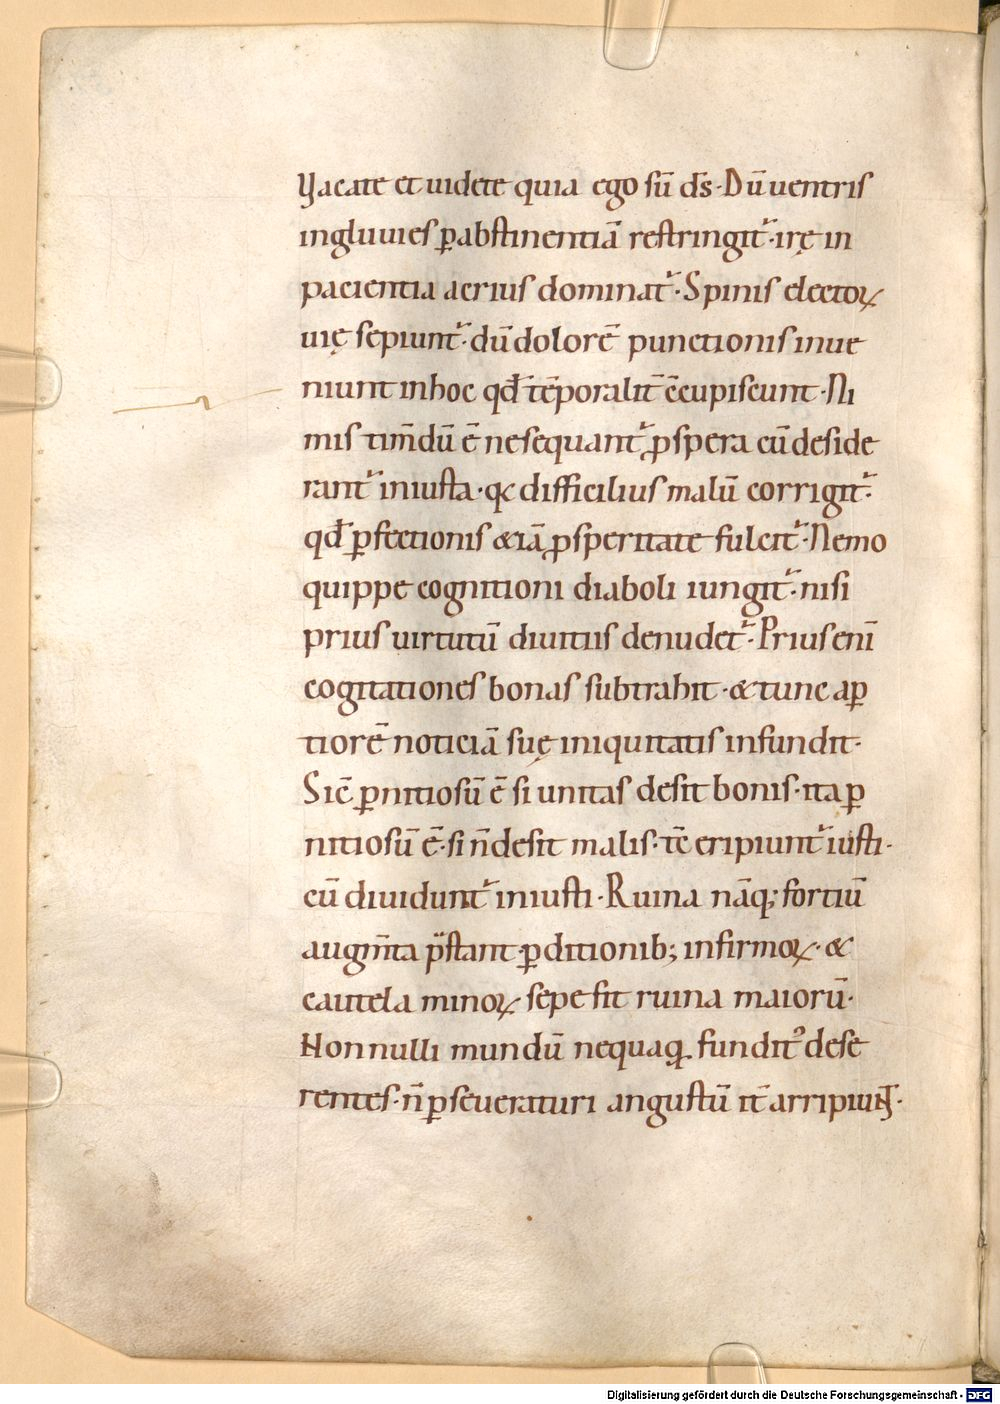 Vacate et uidete quia ego sū ds̄· Dū uentris
ingluuies ꝑabstinentiā restringit᷑· irę in
pacientia acrius dominat᷑· Spinis electoꝝ
uię sepiunt᷑· dū dolorē punctionis inue
niunt inhoc qd̄ tēporalit̄ c̄cupiscunt· Ni
mis tim̄dū ē ne sequant᷑ ꝓspera cū deside
rant᷑ iniusta· qꝛ difficilius malū corrigit᷑·
qd̄ ꝑfectionis &iā ꝓsperitate fulcit᷑· Nemo
quippe cognitioni diaboli iungit᷑· nisi
prius uirtutū diuitiis denudet᷑· Prius enī
cogitationes bonas subtrahit· & tunc aꝑ
tiorē noticiā suę iniquitatis infundit·
Sic̄ ꝑnitiosū ē si unitas desit bonis· ita ꝑ
nitiosū ē· si n̄ desit malis· tc̄ eripiunt᷑ iusti·
cū diuidunt᷑ iniusti· Ruina nāq; fortiū
augm̄ta p̄stant ꝑditionib; infirmoꝝ· &
cautela minoꝝ sepe fit ruina maiorū·
Nonnulli mundū nequaqꝫ fundit᷒ dese
rentes· n̄ ꝑseueraturi angustū it̄ arripiunt·
Digitalisierung gefördert durch die Deutsche Forschungsgemeinschaft - DFG